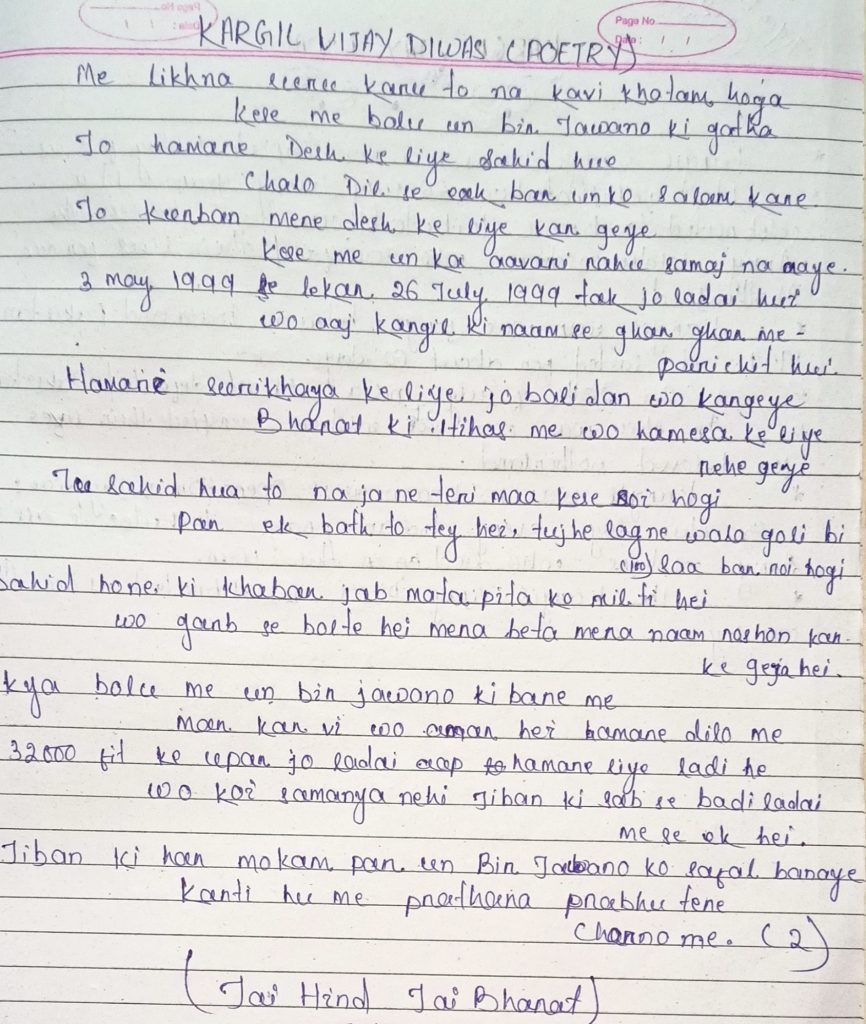 Page No.
Date: / /
KARGIL VIJAY DIWAS (POETRY)
Me likhna suru karu to na kavi khatam hoga
kese me bolu un bir Jawano ki gatha
Jo hamare Desh ke liye sahid hue
Chalo Dil se eak bar unko salam kare
Jo kurban mere desh ke liye kar geye
kese me un ka aavari nahu samaj na aaye.
3 may, 1999 se lekar 26 July 1999 tak jo ladai hui
wo aaj kargil ki naam se ghar ghar me -
parichit hui.
Hamare surikhaya ke liye jo bali dan wo kargeye
Bharat ki itihas me wo hamesa ke liye
rehe geye
Tu sahid hua to na ja ne teri maa kese roi hogi
Par ek bath to tey hei, tujhe lagne wala goli bi
(100) laa bar roi hogi
Sahid hone ki khabar jab mata pita ko mil ti hei
wo garb se bolte hei mera beta mera naam roshon kar
ke geya hei.
kya bolu me un bir jawano ki bare me
mar kar vi wo amar hei hamare dilo me
32000 fit ke upar jo ladai aap hamare liye ladi he
wo koi samanya nehi Jiban ki sab se badi ladai
me se ek hei.
Jiban ki har mokam par un Bir Jawano ko safal banaye
karti hu me prathana prabhu tere
charno me. (2)
(Jai Hind Jai Bharat)